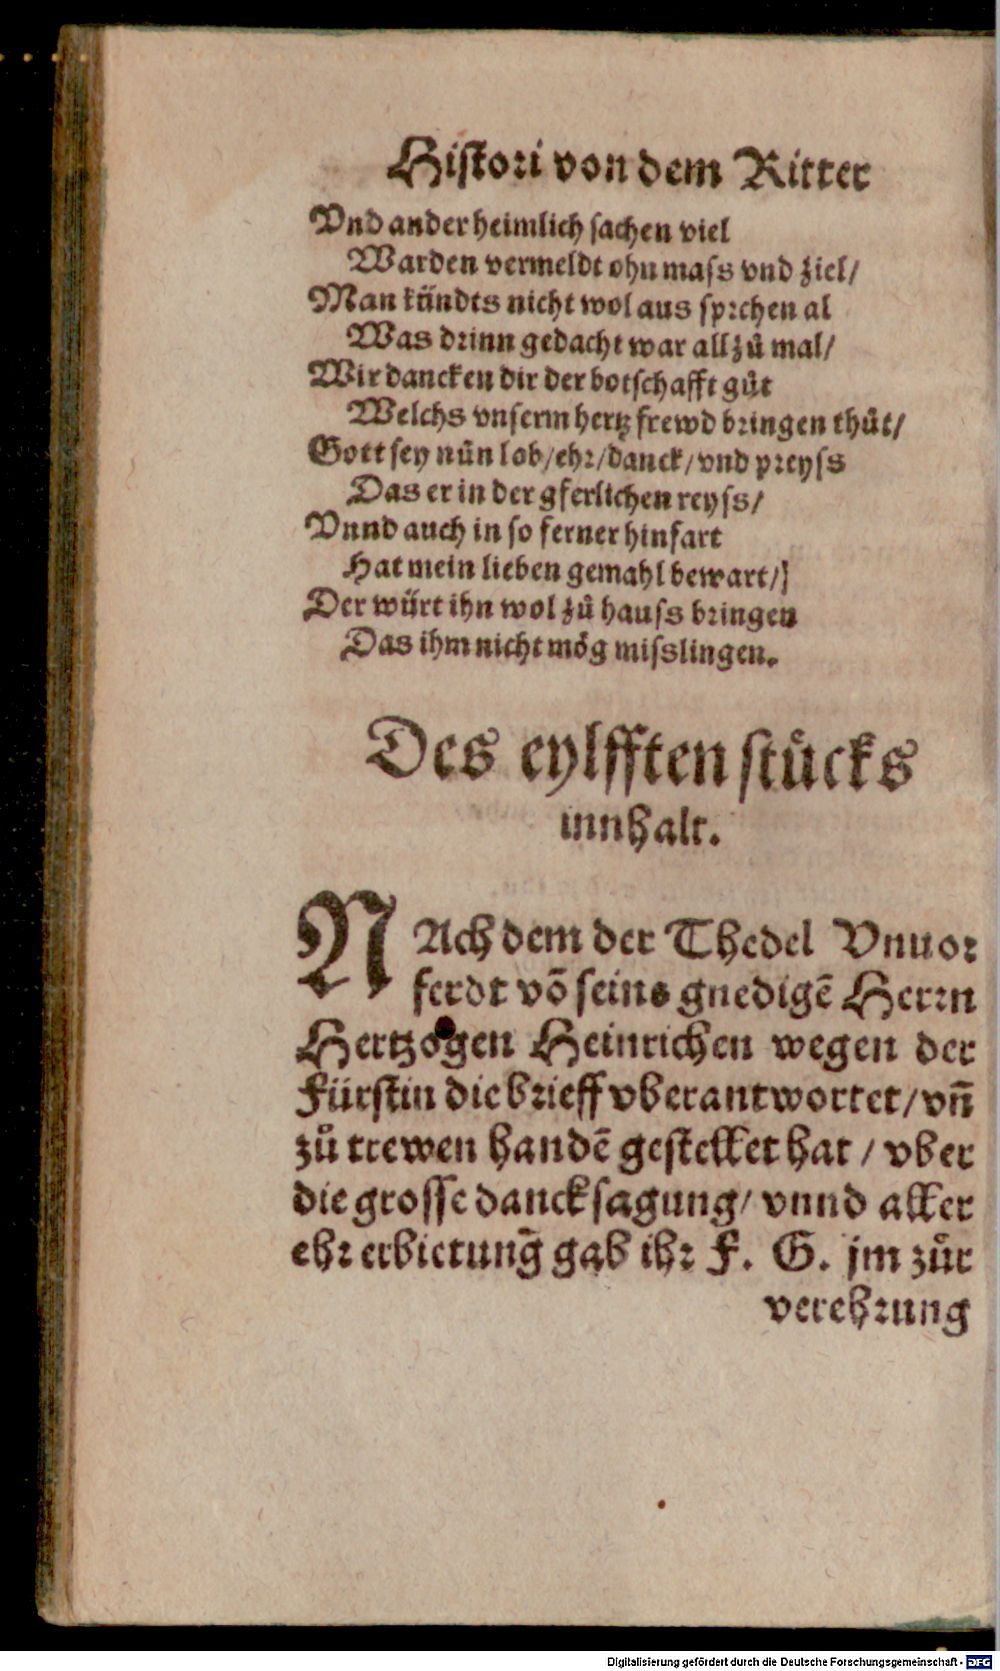 Histori von dem Ritter
Vnd ander heimlich sachen viel
Warden vermeldt ohn mass vnd ziel/
Man kündts nicht wol aus sprchen al
Was drinn gedacht war all zů mal/
Wir dancken dir der botschafft gůt
Welchs vnserm hertz frewd bringen thůt/
Gott sey nůn lob/ehr/danck/vnd preyss
Das er in der gferlichen reyss/
Vnnd auch in so ferner hinfart
Hat mein lieben gemahl bewart/]
Der würt ihn wol zů hauss bringen
Das ihm nicht mög misslingen.
Des eylfften stücks
innhalt.
NAch dem der Thedel Vnuor
ferdt võ seins gnedigẽ Herrn
Hertzogen Heinrichen wegen der
Fürstin die brieff vberantwortet/vñ
zů trewen handẽ gestellet hat / vber
die grosse dancksagung/ vnnd aller
ehr erbietung̃ gab ihr F. G. jm zůr
verehrung
Digitalisierung gefördert durch die Deutsche Forschungsgemeinschaft - DFG